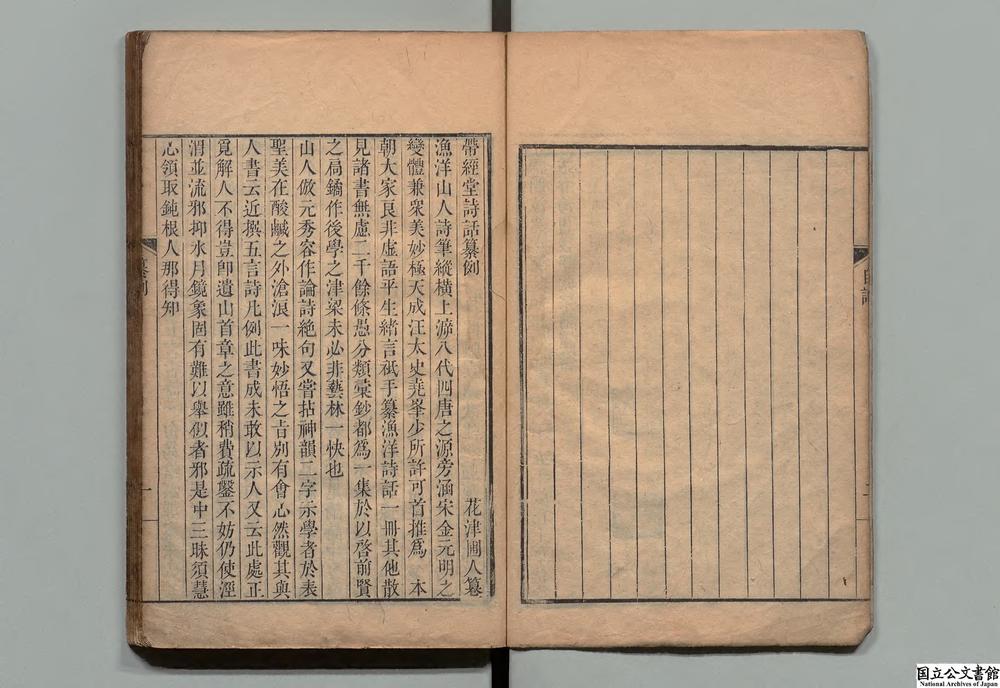 自序
二
帶經堂詩話纂例
花津圃人纂
漁洋山人詩筆縱橫上遡八代四唐之源旁涵宋金元明之
變體兼衆美妙極天成汪太史堯峯少所許可首推爲 本
朝大家良非虛語平生緒言祇手纂漁洋詩話一冊其他散
見諸書無慮二千餘條愚分類彙鈔都爲一集於以啓前賢
之扃鐍作後學之津梁未必非藝林一快也
山人倣元秀容作論詩絕句又嘗拈神韻二字示學者於表
聖美在酸鹹之外滄浪一味妙悟之旨別有會心然觀其與
人書云近撰五言詩凡例此書成未敢以示人又云此處正
覓解人不得豈卽遺山首章之意雖稍費疏鑿不妨仍使涇
渭並流邪抑水月鏡象固有難以舉似者邪是中三昧須慧
心領取鈍根人那得知
纂例
一
国立公文書館
National Archives of Japan